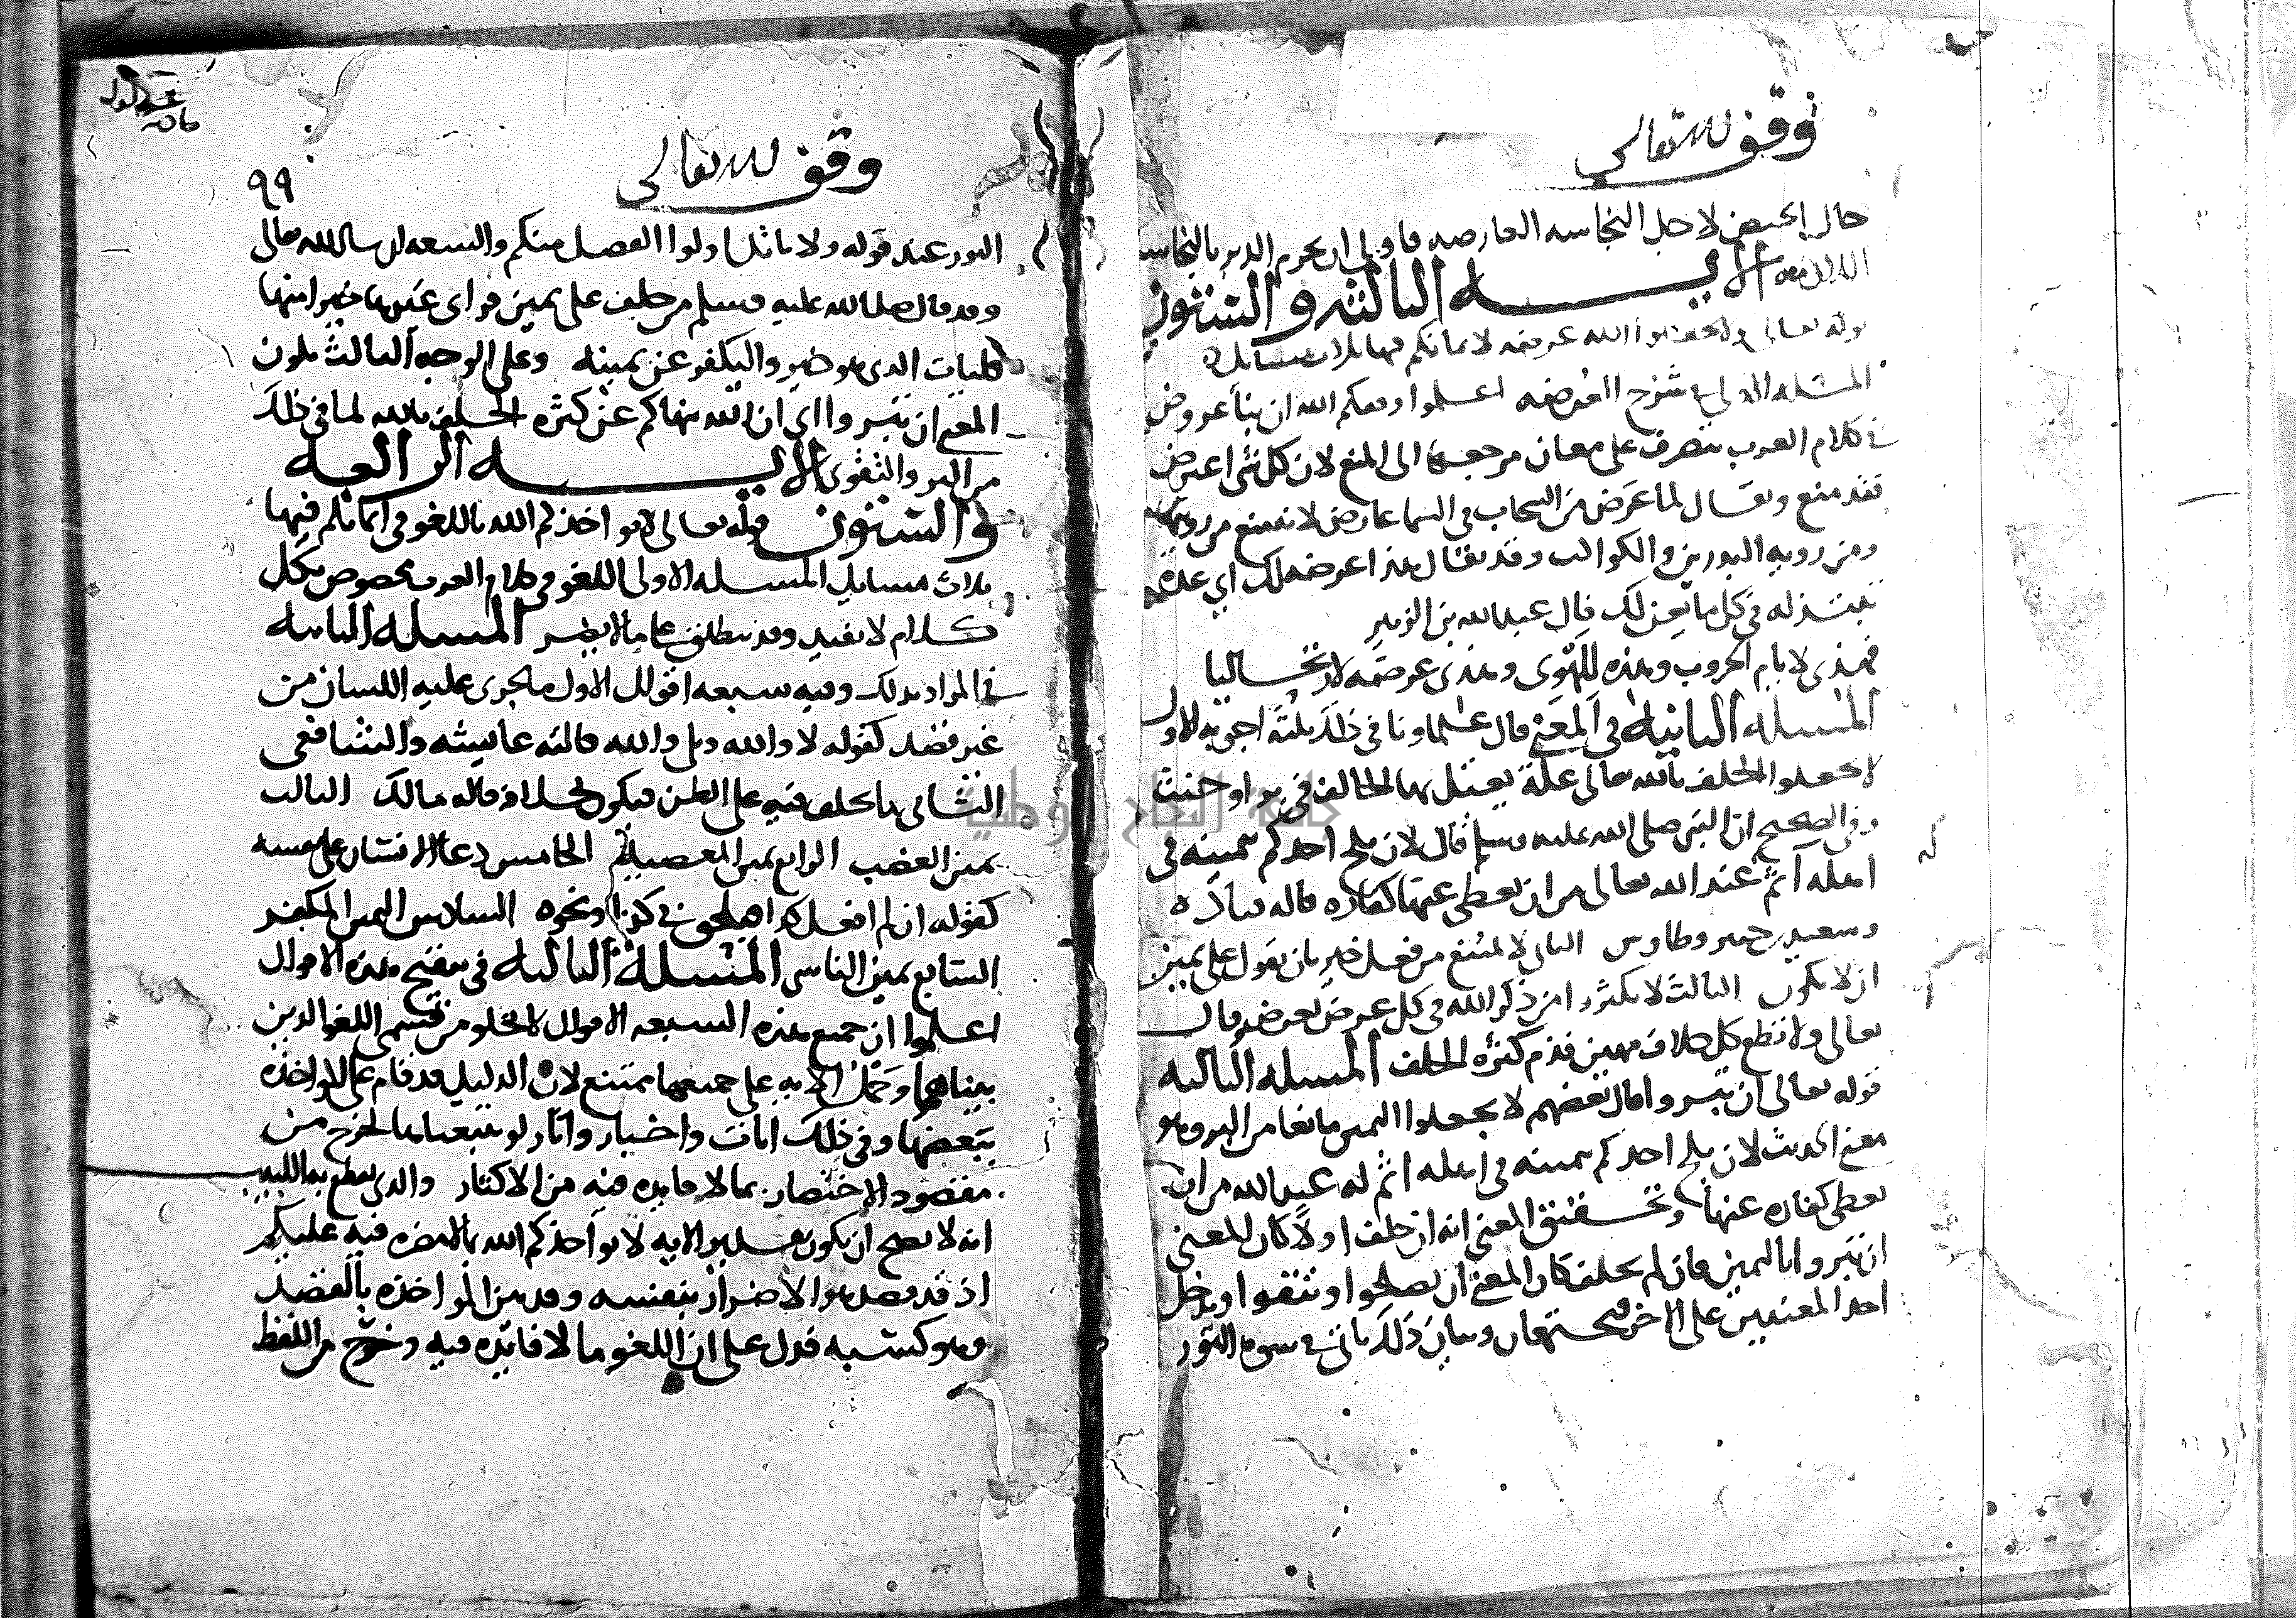 وقف لله تعالى
حال الحيض لاجل النجاسه العارضه فاولى ان يحرم الدبر بالنجاسه
اللازمه الايـــه الثالثه والستون
قوله تعالى ولا تجعلوا الله عرضه لايمانكم فيها ثلاث مسايل
المسئله الاولى في شرح العرضه اعلموا وفقكم الله ان بنا عروض
في كلام العرب يتصرف على معان مرجعها الى المنع لان كل شي اعترض
فقد منع ويقال لما عرض من السحاب في السما عارض لانه يمنع من رويتها
ومن رويه البدرين والكواكب وقد يقال هذا عرضه لك اي عده
تبتذله في كل ما يعن لك قال عبدالله بن الزبير
فهذى لايام الحروب وهذه للهوى وهذى عرضه لارتحاليا
المسله الثانيه في المعنى قال علماونا في ذلك ثلثه اجوبه الاول
لا تجعلوا الحلف بالله تعالى علة يعتل بها الحالف في بر او حنث
وفي الصحيح ان النبي صلى الله عليه وسلم قال لان يلج احدكم بيمينه في
اهله آثم عند الله تعالى من ان يعطى عنها كفاره قاله قتاده
وسعيد بن جبير وطاوس الثانى لا تمتنع من فعل خير بان تقول على يمين
ان لا يكون الثالث لا تكثروا من ذكر الله في كل عرض يعرض قال
تعالى ولا تطع كل حلاف مهين فذم كثره الحلف المسله الثالثه
قوله تعالى ان تبروا قال بعضهم لا تجعلوا اليمين مانعا من البر وهو
معنى الحديث لان يلج احدكم بيمينه في اهله آثم له عند الله من ان
يعطى كفاره عنها وتحقيق المعنى انه ان حلف اولا كان المعنى
ان تبروا باليمين فان لم يحلف كان المعنى ان تصلحوا وتتقوا ويدخل
احد المعنيين على الاخر فيجتمعان وبيان ذلك ياتى في سوره النور
وقف لله تعالى
٩٩
النور عند قوله ولا ياتل اولوا الفضل منكم والسعه ان شا الله تعالى
وقد قال صلى الله عليه وسلم من حلف على يمين فراى غيرها خيرا منها
فليات الذى هو خير وليكفر عن يمينه وعلى الوجه الثالث يكون
المعنى ان تبروا اى ان الله ينهاكم عن كثره الحلف بالله لما في ذلك
من البر والتقوى الايـــه الرابعه
والستون قوله تعالى لا يواخذكم الله باللغو في ايمانكم فيها
ثلاث مسايل المسله الاولى اللغو في كلام العرب مخصوص بكل
كلام لا يفيد وقد ينطلق على ما لا يضر المسله الثانيه
في المراد بذلك وفيه سبعه اقوال الاول ما يجرى عليه اللسان من
غير قصد كقوله لا والله وبلى والله قالته عايشه والشافعى
الثانى ما يحلف فيه على الظن فيكون بخلافه قاله مالك الثالث
يمين الغضب الرابع يمين المعصيه الخامس دعا الانسان على نفسه
كقوله ان لم افعل كذا فيلحق بي كذا ونحوه السادس اليمين المكفره
السابع يمين الناسى المسله الثالثه في تنقيح هذه الاقوال
اعلموا ان جميع هذه السبعه الاقوال لا تخلو من قسمى اللغو الذين
بيناهما وحمل الايه على جميعها ممتنع لان الدليل قد قام على المواخذه
ببعضها وفي ذلك ايات واخبار واثار لو تتبعناها لخرج من
مقصود الاختصار بما لا فايده فيه من الاكثار والذى يقطع به اللبيب
انه لا يصح ان يكون تقدير الايه لا يواخذكم الله بما لا مضره فيه عليكم
اذ قد قصد هو الاضرار بنفسه وقد بين المواخذه بالقصد
وهو كسبه فدل على ان اللغو ما لا فايده فيه وخرج من اللفظ